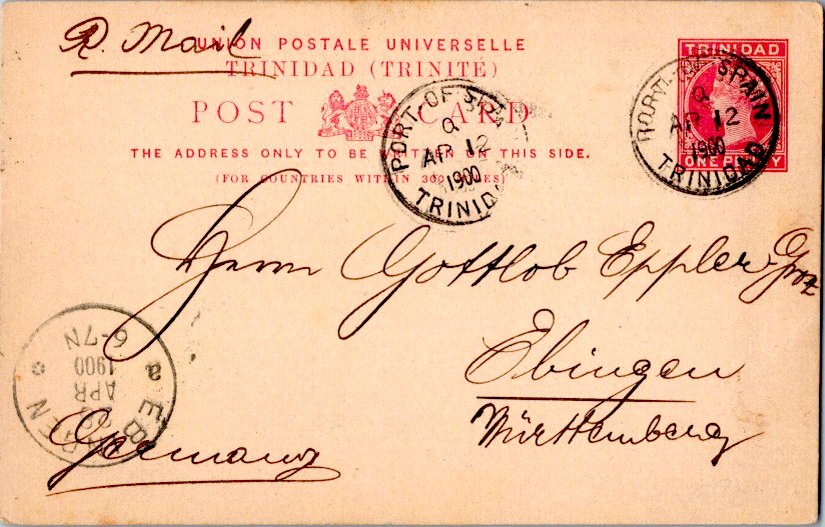 R. Mail
UNION POSTALE UNIVERSELLE
TRINIDAD (TRINITÉ)
POST CARD
THE ADDRESS ONLY TO BE WRITTEN ON THIS SIDE.
(FOR COUNTRIES WITHIN 300 MILES)
TRINIDAD
ONE PENNY
PORT-OF-SPA
AP 12
1900
TRINIDA
PORT-OF-SPAIN
AP 12
1900
TRINIDAD
Herrn Gottlob Eppler
Ebingen
Württemberg
Germany
EB EN
APR
1900
6-7N